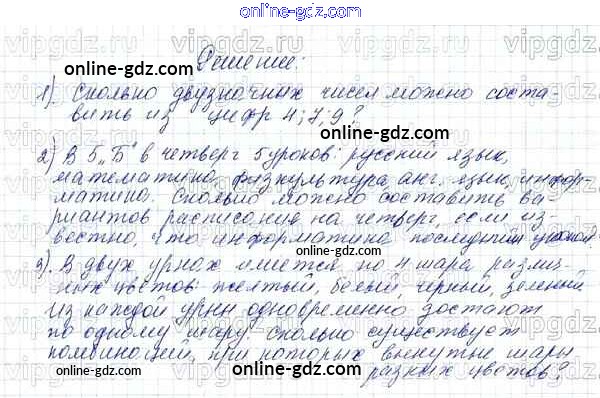 online-gdz.com
Решение:
online-gdz.com
1) Сколько двузначных чисел можно соста-
вить из цифр 4; 7; 9?
online-gdz.com
2) В 5 „Б" в четверг 5 уроков: русский язык,
математика, физкультура, анг. язык, инфор-
матика. Сколько можно составить ва-
риантов расписания на четверг, если из-
вестно, что информатика последний урок.
3) В двух урнах имеется по 4 шара разли-
ных цветов: желтый, белый, черный, зеленый
Из каждой урны одновременно достают
по одному шару. Сколько существует
комбинаций, при которых вынутые шары
разных цветов?
online-gdz.com
online-gdz.com
vipgdz.com